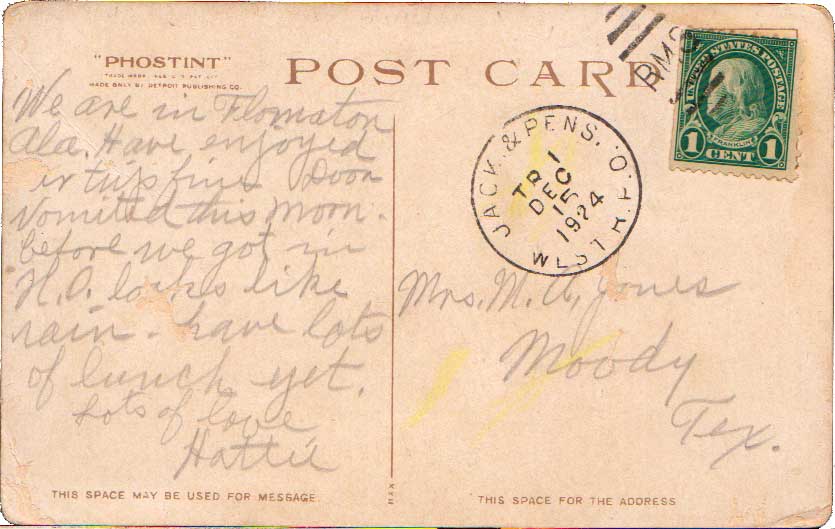 "PHOSTINT"
MADE ONLY BY DETROIT PUBLISHING CO.
POST CARD
We are in Flomaton
Ala. Have enjoyed
er trip fine Doon
Vomited this morn-
before we got in
N.O. looks like
rain - have lots
of lunch yet.
Lots of love
Hattie
THIS SPACE MAY BE USED FOR MESSAGE.
RMS
UNITED STATES POSTAGE
FRANKLIN
1 CENT 1
JACK. & PENS. R.P.O.
TR 1
DEC
15
1924
WEST
Mrs. M. A. Jones
Moody
Tex.
THIS SPACE FOR THE ADDRESS